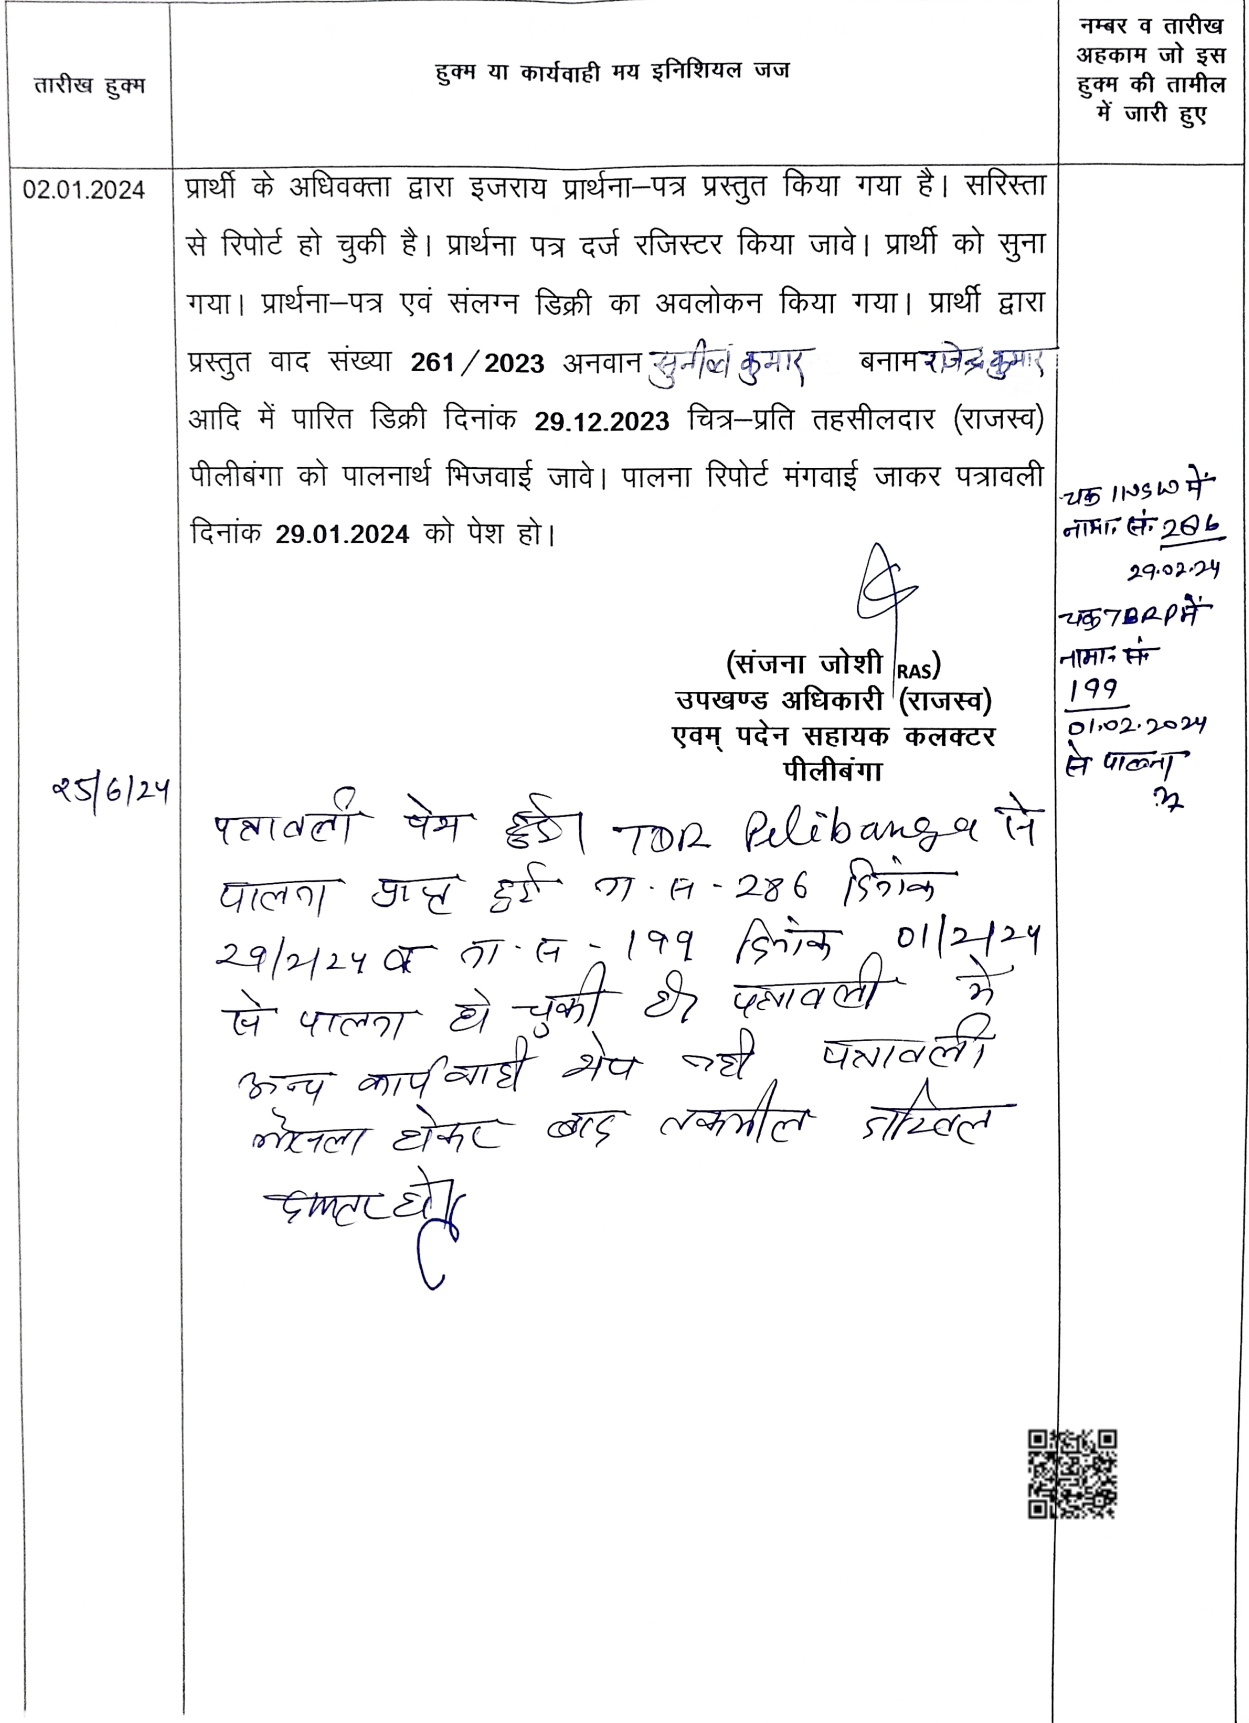 तारीख हुक्म
हुक्म या कार्यवाही मय इनिशियल जज
नम्बर व तारीख
अहकाम जो इस
हुक्म की तामील
में जारी हुए
02.01.2024
प्रार्थी के अधिवक्ता द्वारा इजराय प्रार्थना–पत्र प्रस्तुत किया गया है। सरिस्ता
से रिपोर्ट हो चुकी है। प्रार्थना पत्र दर्ज रजिस्टर किया जावे। प्रार्थी को सुना
गया। प्रार्थना–पत्र एवं संलग्न डिक्री का अवलोकन किया गया। प्रार्थी द्वारा
प्रस्तुत वाद संख्या 261/2023 अनवान सुनील कुमार बनाम राजेन्द्र कुमार
आदि में पारित डिक्री दिनांक 29.12.2023 चित्र–प्रति तहसीलदार (राजस्व)
पीलीबंगा को पालनार्थ भिजवाई जावे। पालना रिपोर्ट मंगवाई जाकर पत्रावली
दिनांक 29.01.2024 को पेश हो।
(संजना जोशी RAS)
उपखण्ड अधिकारी (राजस्व)
एवम् पदेन सहायक कलक्टर
पीलीबंगा
चक में
नामा. सं. 286
29.02.24
चक 7BRP में
नामा. सं.
199
01.02.2024
से पालना
25/6/24
पत्रावली पेश हुई। TDR Pelibanga से
पालना प्राप्त हुई ना. स - 286 दिनांक
29/2/24 व ना. स - 199 दिनांक 01/2/24
से पालना हो चुकी है। पत्रावली में
अन्य कार्यवाही शेष नही पत्रावली
फैसला होकर बाद तकमील दाखिल
दफ्तर हो।